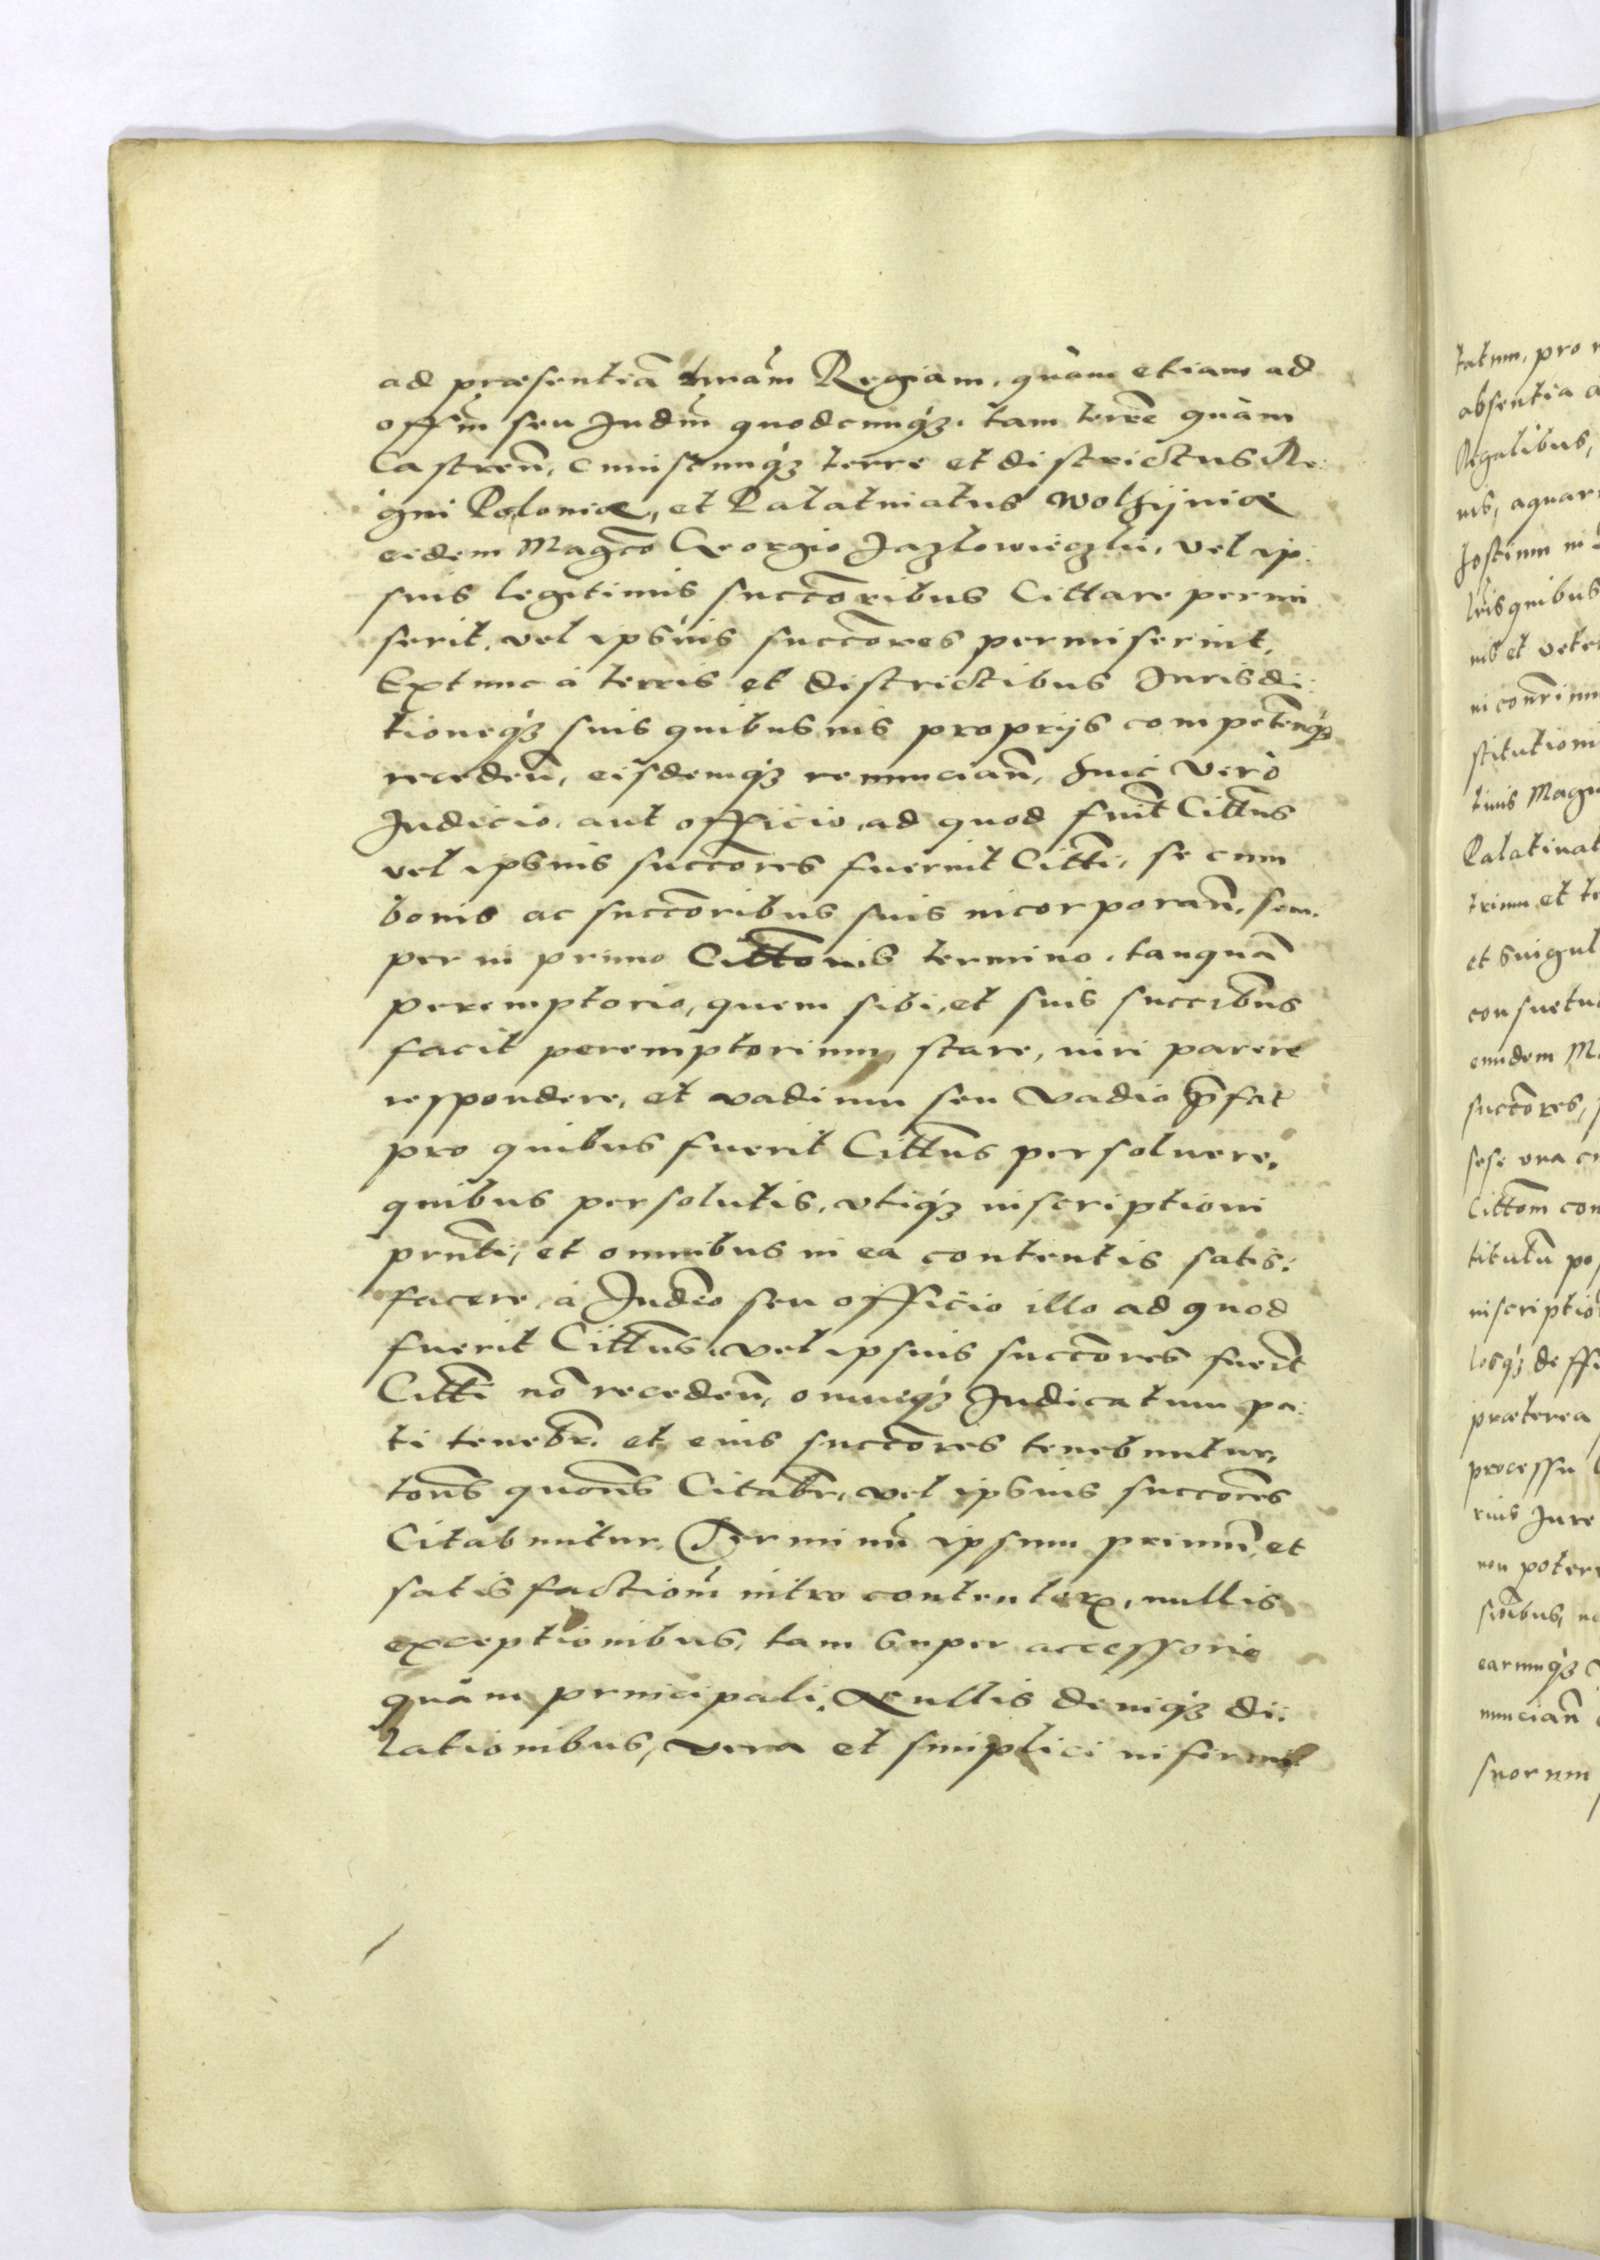 ad præsentiā Regiam, quàm etiam ad
offm̄ seu Judm̄ quodcunqȝ, tam terrē quàm
Castren̄, cuiuscunqȝ terre et districtus Re:
gni Poloniæ, et Palatinatus Wolhijniæ
eidem Magco Georgio Jazlowieczki, vel ip:
sius legitimis succōribus Cittare permi
serit, vel ipsius succōres permiserint,
Extunc à terris et districtibus Jurisdi:
tioneqȝ suis quibusuis proprijs competen̄qȝ
receden̄, eisdemqȝ renuncian̄, huic verò
Judicio, aut officio, ad quod fuit̄ Citt̄us
vel ipsius succōres fuerint Citt̄i, se cum
bonis ac succōribus suis incorporan̄, sem:
per in primo Citt̄onis termino, tanquā
peremptorio, quem sibi, et suis succribus
facit peremptorium stare, iuri parere
respondere, et vadium seu vadio p̄fat
pro quibus fuerit Citt̄us persoluere,
quibus persolutis, vtiqȝ inscriptioni
prn̄ti, et omnibus in ea contentis satis:
facere, à Judēo seu officio illo ad quod
fuerit Citt̄us, vel ipsius succōres fuerīt
Citt̄i nō receden̄, omneqȝ Judicatum pa:
ti tenebr̄. et eius succōres tenebuntur,
totn̄s quotn̄s Citabr̄, vel ipsius succōres
Citabuntur. Terminū ipsum primū, et
satisfactiom̄ intro contentorꝝ, nullis
exceptionibus, tam super accessorio
quàm principali, Nullis deniqȝ di:
lationibus, vera et simplici infirmit

tatum, pro
absentia a
Regalibus,
nis, aquar
hostium in
leis quibus
nis et vete
ni
stitutioni
tinis Magn
Palatinat
trium et te
et singul
consuetu
eiusdem M
succōres,
sese vna cu
Cittom̄ con
titutū po
inscriptio
losqȝ deffi
præterea
processu
rius Jure
non poter
siōibus, n
earumqȝ
nuncian̄
suorum